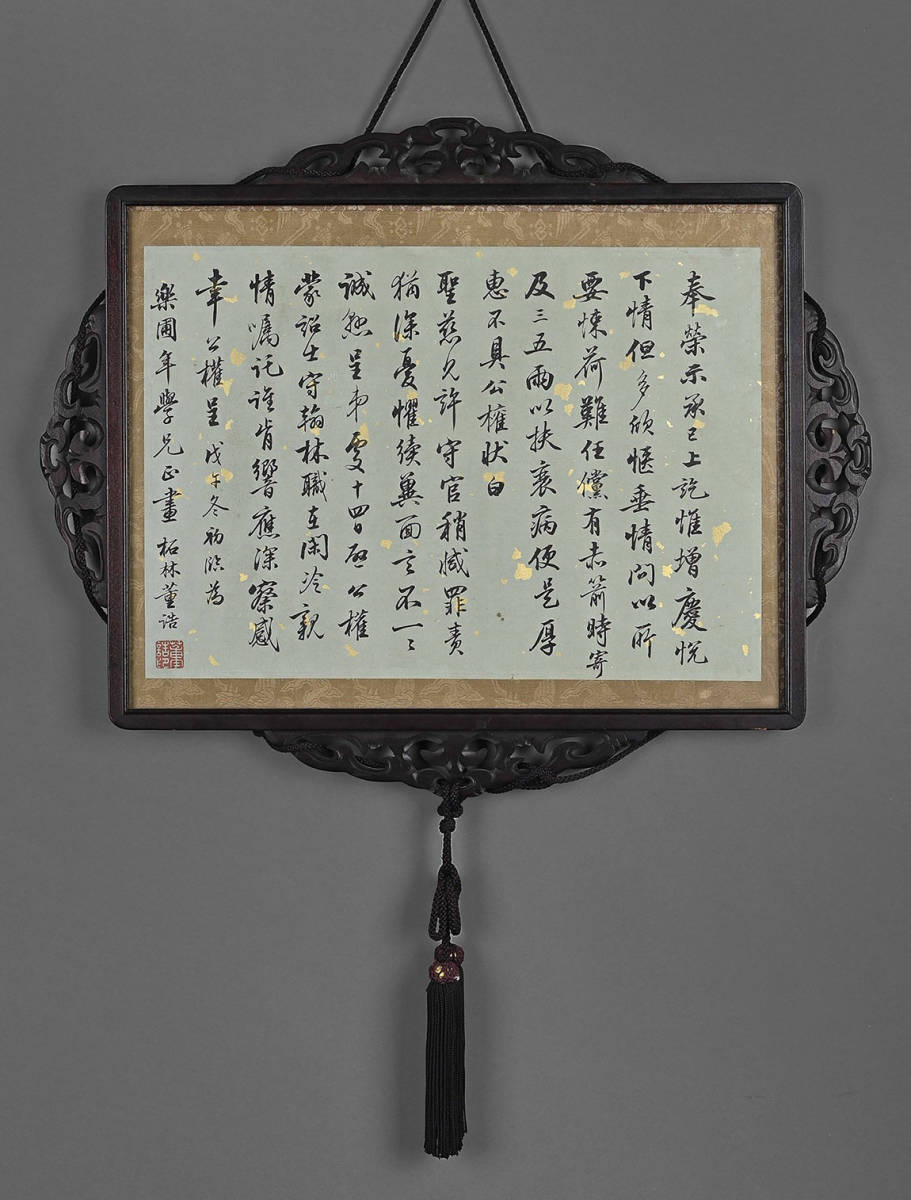 奉榮示承已上訖惟增慶悅
下情但多欣愜垂情問以所
要悚荷難任儻有赤箭時寄
及三五兩以扶衰病便是厚
惠不具公權狀白
聖慈允許守官稍減罪責
猶深憂懼續冀面言不一一
誠懸呈弟處十四日愿公權
蒙詔出守翰林職在閑冷親
情囑託誰肯響應深察感
幸公權呈戊午冬初臨為
樂圃年學兄正畫 柘林董誥